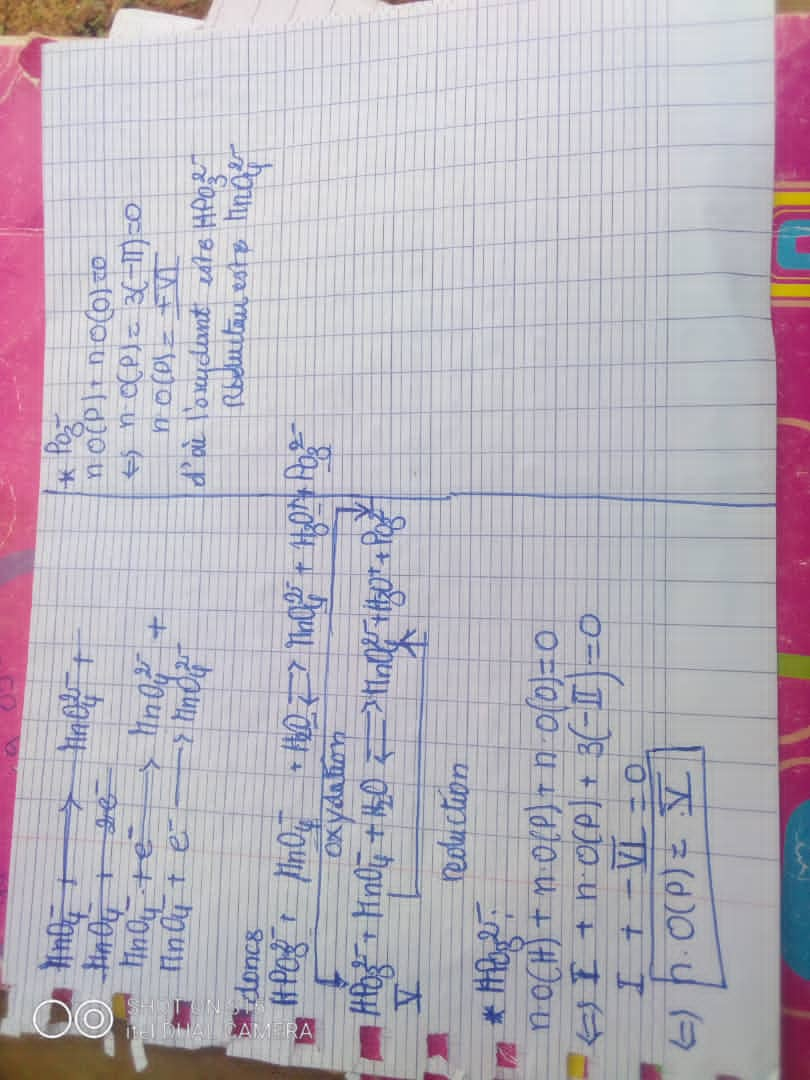 MnO₄⁻ + ⟶ MnO₄²⁻ +
MnO₄⁻ + 2e⁻
MnO₄⁻ + e⁻ ⟶ MnO₄²⁻ +
MnO₄⁻ + e⁻ ⟶ MnO₄²⁻
donc
HPO₃²⁻ + MnO₄⁻ + H₂O ⇌ MnO₄²⁻ + H₃O⁺ + PO₃²⁻
oxydation
HPO₃²⁻ + MnO₄⁻ + H₂O ⇌ MnO₄²⁻ + H₃O⁺ + PO₃²⁻
V
reduction
* HPO₃²⁻:
n.O(H) + n.O(P) + n.O(O) = 0
⇔ I + n.O(P) + 3(-II) = 0
I + -VI = 0
⇔ n.O(P) = V
* PO₃⁻
n O(P) + n O(O) = 0
⇔ n O(P) = 3(-II) = 0
n O(P) = +VI
d'où l'oxydant est HPO₃²⁻
Réducteur est MnO₄²⁻
SHOT ON S16
itel DUAL CAMERA